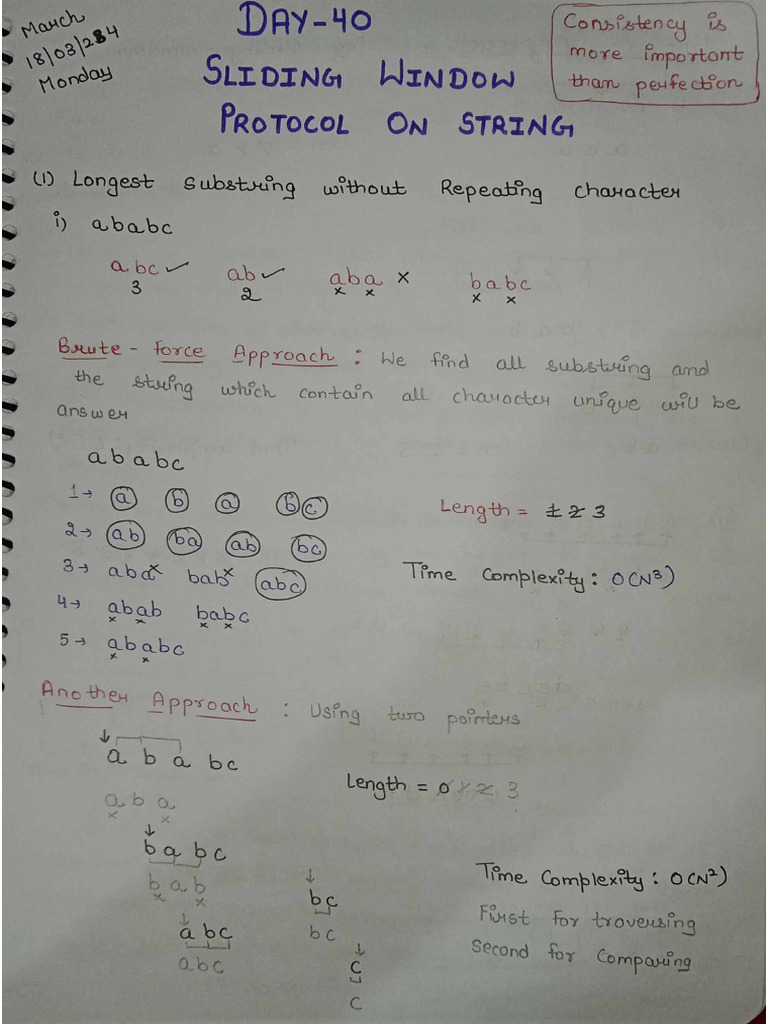 March
18/03/24
Monday
DAY-40
SLIDING WINDOW
PROTOCOL ON STRING
Consistency is
more important
than perfection
(1) Longest substring without Repeating character
i) ababc
abc ✓ ab ✓ aba × babc
3 2 × × × ×
Brute-force Approach : We find all substring and
the string which contain all character unique will be
answer
ababc
1→ a b a b c
2→ ab ba ab bc
3→ aba× bab× abc
4→ abab babc
× × × ×
5→ ababc
× ×
Length = 1 2 3
Time Complexity : O(N³)
Another Approach : Using two pointers
↓
a b a bc
Length = 0 1 2 3
a b a
× ×
↓
b a b c
b a b
× ×
↓
a b c
abc
↓
bc
bc
↓
c
c
Time Complexity : O(N²)
First for troversing
Second for comparing